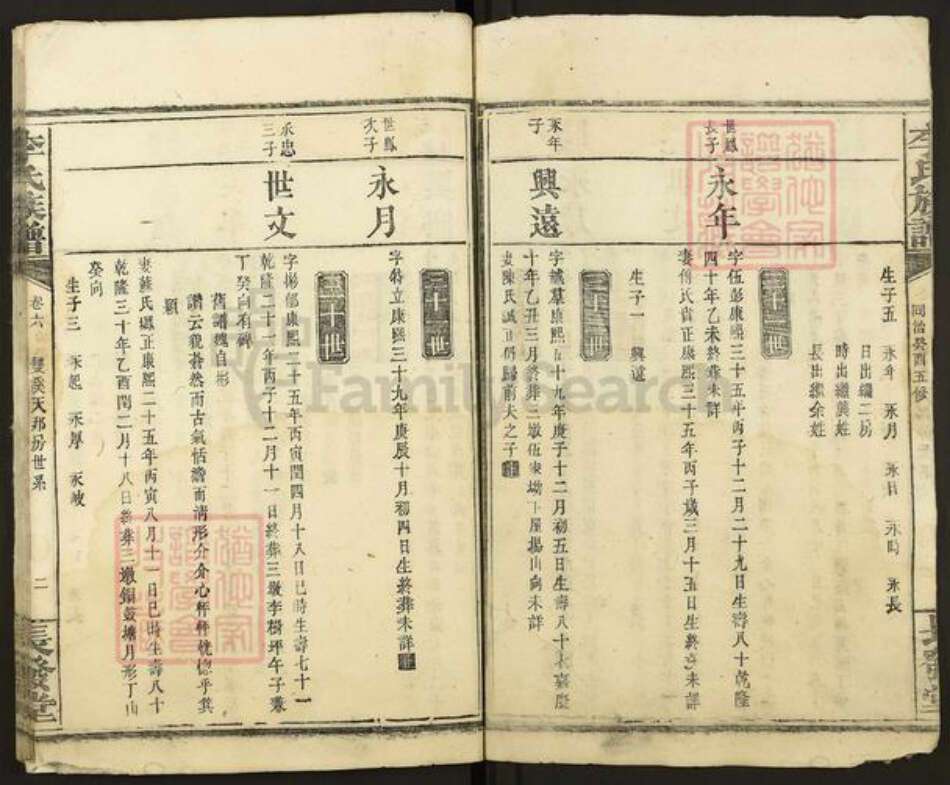 李氏族譜
同治癸酉五修
生子五 永年 永月 永日 永時 永長
日出繼二房
時出繼龔姓
長出繼余姓
三十二世
世鳳長子
永年
字伍彭康熙三十五年丙子十二月二十九日生壽八十乾隆
四十年乙未終葬未詳
妻傅氏貞正康熙三十五年丙子歲三月十五日生終葬未詳
生子一 興遠
三十三世
永年子
興遠
字誠羣康熙五十九年庚子十二月初五日生壽八十六嘉慶
十年乙丑三月終葬三墩伍家坳下屋揚山向未詳
妻陳氏誠正
歸前夫之子
三十二世
世鳳次子
永月
字特立康熙三十九年庚辰十月初四日生終葬未詳
三十一世
永忠三子
世文
字彬郁康熙二十五年丙寅閏四月十八日巳時生壽七十一
乾隆二十一年丙子十二月十一日終葬三墩李樹坪午子兼
丁癸向有碑
舊譜魏自彬
讚云貌蒼然而古氣恬澹而清形介介心秤秤恍德乎其
顯
妻薛氏郷正康熙二十五年丙寅八月十一日巳時生壽八十
乾隆三十年乙酉閏二月十八日終葬三墩銅鼓墩月形丁山
癸向
生子三 永熙 永厚 永峻
李氏族譜
卷六
雙溪天邦房世系
二
FamilySearch